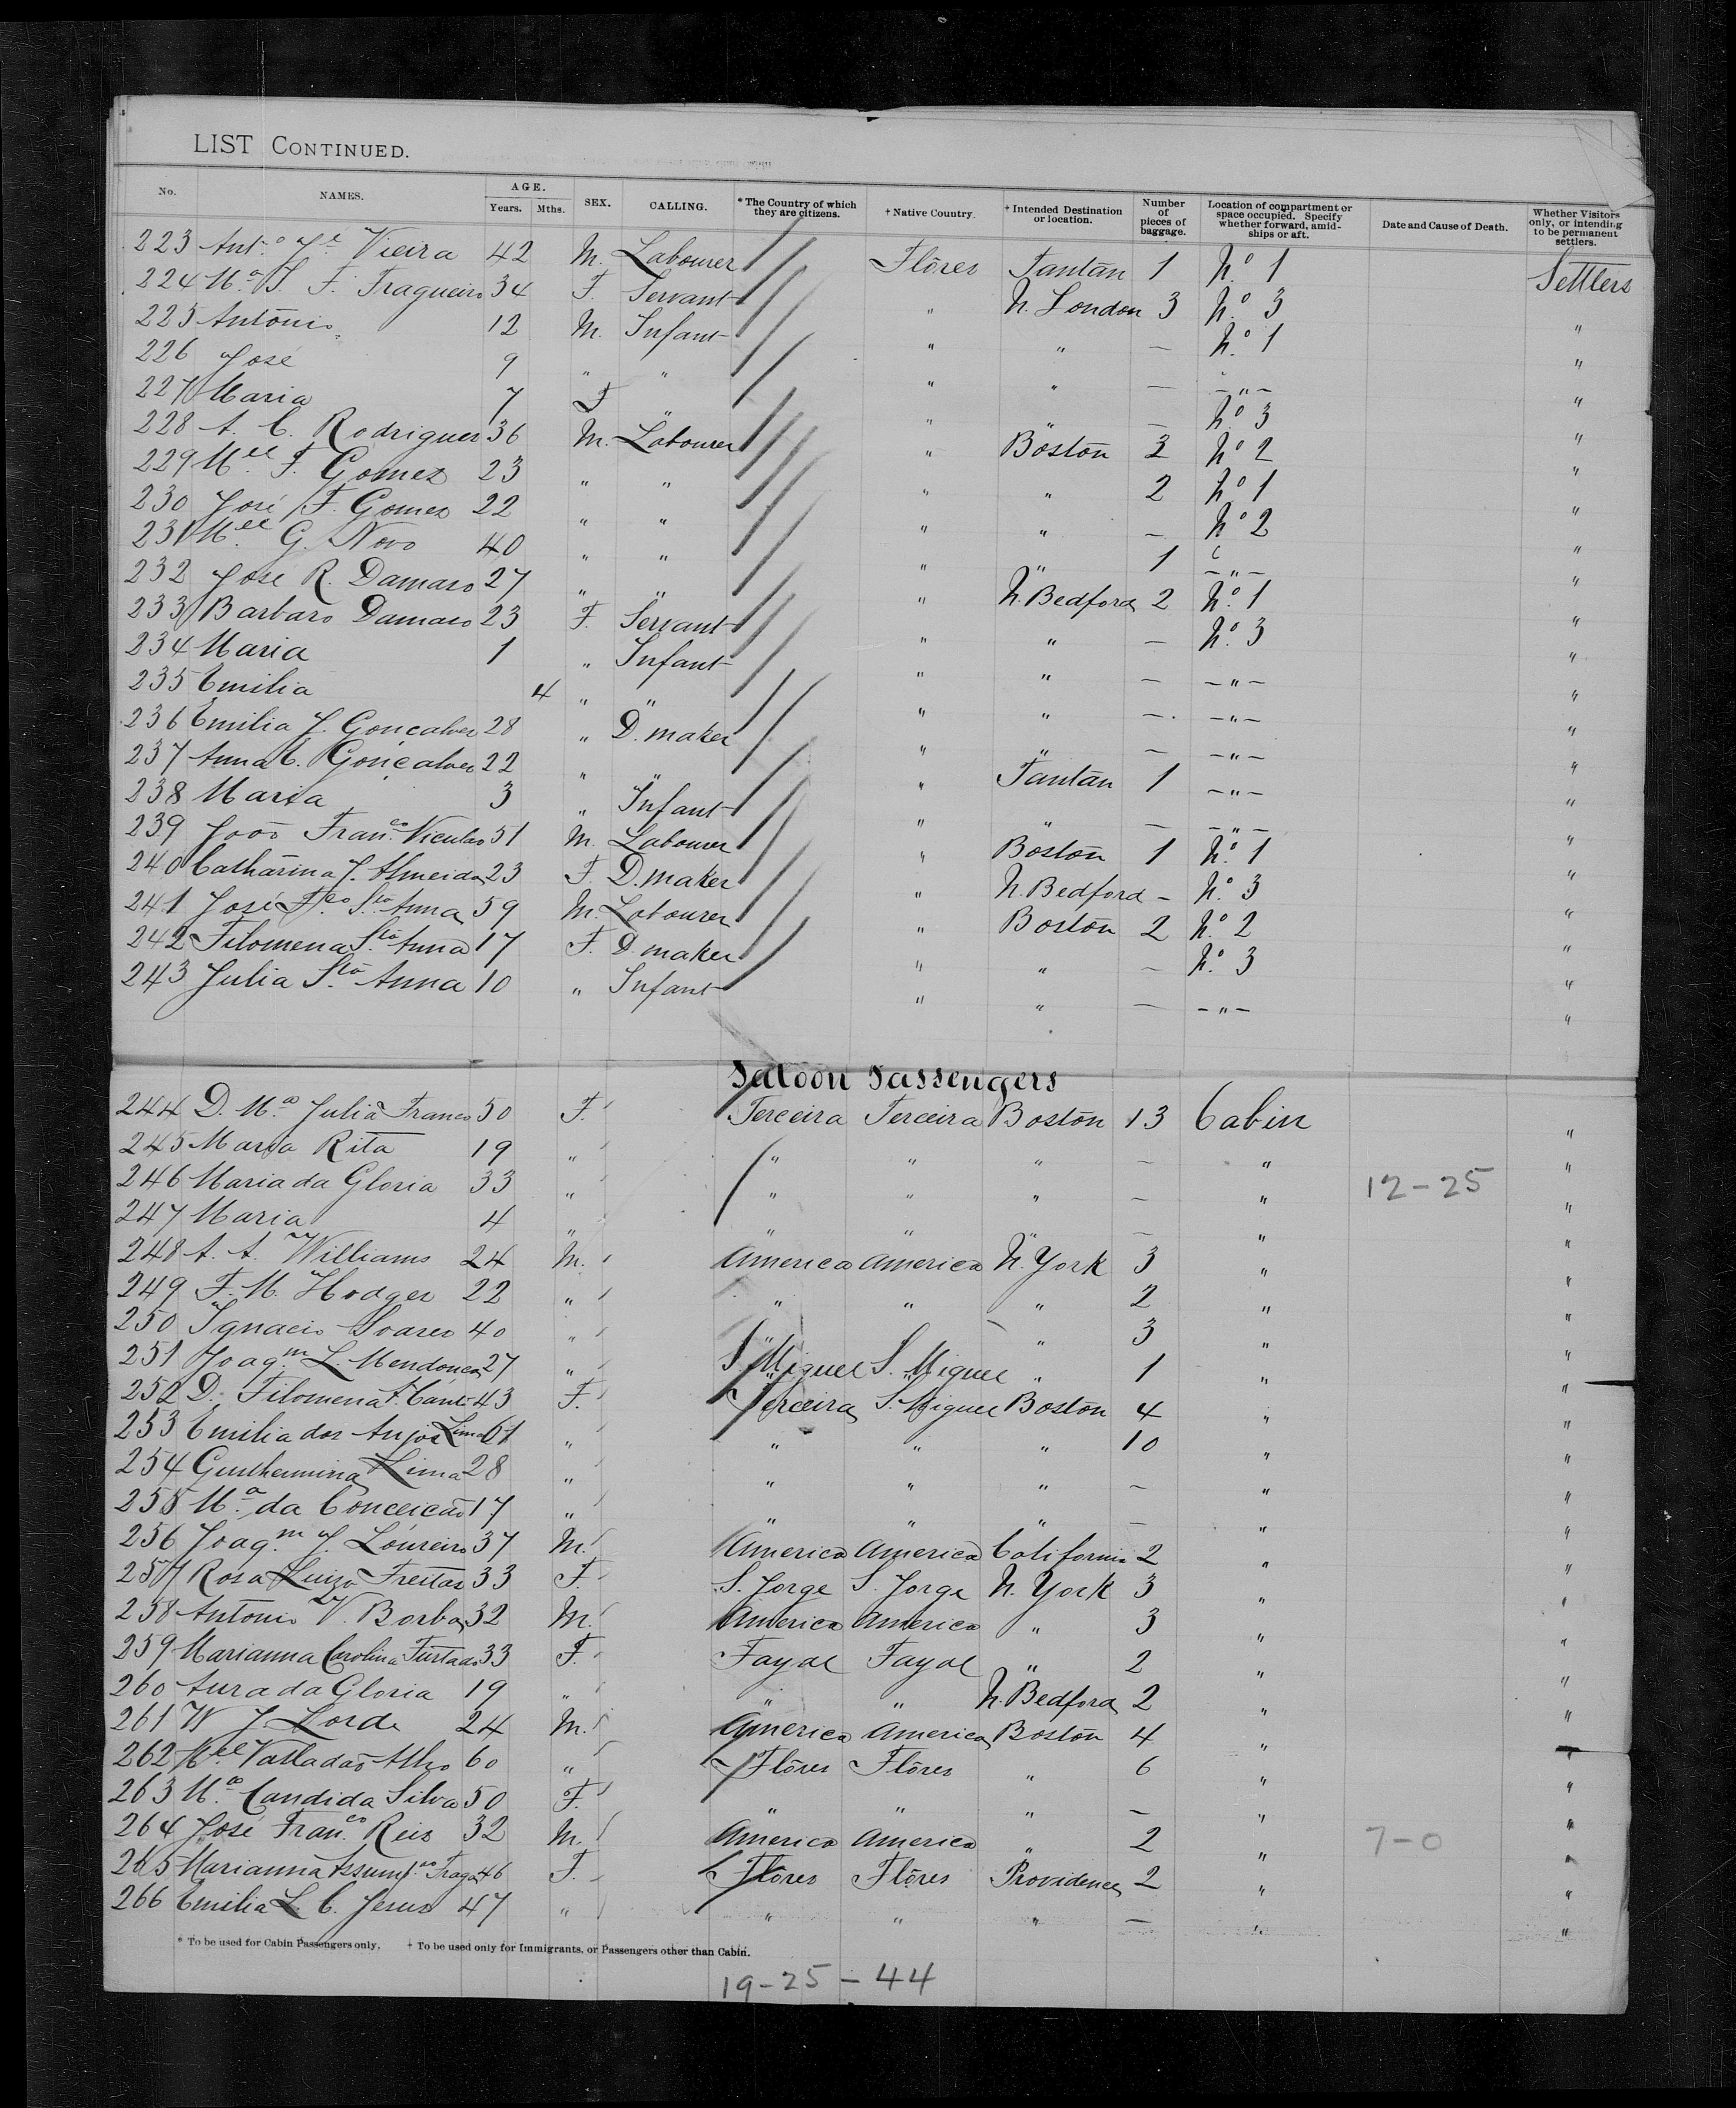 LIST CONTINUED.
No. NAMES. AGE. Years. Mths. SEX. CALLING. * The Country of which they are citizens. † Native Country. † Intended Destination or location. Number of pieces of baggage. Location of compartment or space occupied. Specify whether forward, amidships or aft. Date and Cause of Death. Whether Visitors only, or intending to be permanent settlers.
223 Antº Jé Vieira 42 M. Labourer Flôres Tantãn 1 Nº 1 Settlers
224 Mª J. F. Fragueiro 34 F. Servant " N. London 3 Nº 3 "
225 Antonio 12 M. Infant " " — Nº 1 "
226 José 9 " " " " — — " — "
227 Maria 7 F " " " — Nº 3 "
228 A. C. Rodrigues 36 M. Labourer " Boston 2 Nº 2 "
229 Mel F. Gomes 23 " " " " 2 Nº 1 "
230 José F. Gomes 22 " " " " — Nº 2 "
231 Mel G. Novo 40 " " " " 1 — " — "
232 José R. Damaso 27 " " " N. Bedford 2 Nº 1 "
233 Barbaro Damaso 23 F. Servant " " — Nº 3 "
234 Maria 1 " Infant " " — — " — "
235 Emilia 4 " " " " — — " — "
236 Emilia J. Gonçalves 28 " D. maker " " — — " — "
237 Anna C. Gonçalves 22 " " " Tantãn 1 — " — "
238 Maria 3 " Infant " " — — " — "
239 João Franco 51 M. Labourer " Boston 1 Nº 1 "
240 Catharina J. Almeida 23 F. D. maker " N. Bedford — Nº 3 "
241 José Fco Sta Anna 59 M. Labourer " Boston 2 Nº 2 "
242 Filomena Sta Anna 17 F. D. maker " " — Nº 3 "
243 Julia Sta Anna 10 " Infant " " — — " — "
Saloon Passengers
244 D. Mª Julia Franco 50 F. Terceira Terceira Boston 13 Cabin "
245 Maria Rita 19 " " " " — " "
246 Maria da Gloria 33 " " " " — " 12-25 "
247 Maria 4 " " " " — " "
248 A. A. Williams 24 M. America America N. York 3 " "
249 F. M. Hodges 22 " " " " 2 " "
250 Ignacio Soares 40 " " " " 3 " "
251 Joaqm L. Mendonça 27 " S. Miguel S. Miguel " 1 " "
252 D. Filomena 43 F. Terceira S. Miguel Boston 4 " "
253 Emilia dos Anjos Lima " " " " 10 " "
254 Guilhermina Lima 28 " " " " — " "
255 Mª da Conceicão 17 " " " " — " "
256 Joaqm J. Loureiro 37 M. America America California 2 " "
257 Rosa Luiza Freitas 33 F. S. Jorge S. Jorge N. York 3 " "
258 Antonio V. Borba 32 M. America America " 3 " "
259 Marianna Carolina Furtado 33 F. Fayal Fayal " 2 " "
260 Aura da Gloria 19 " " " N. Bedford 2 " "
261 W J. Lorde 24 M. America America Boston 4 " "
262 Mel Valladão 60 " Flôres Flôres " 6 " "
263 Mª Candida Silva 50 F. " " " — " "
264 José Franco Reis 32 M. America America " 2 " 7-0 "
265 Marianna Assumpco Fraga 46 F. Flôres Flôres Providence 2 " "
266 Emilia L. C. Jesus 47 " " " " — " "
* To be used for Cabin Passengers only. † To be used only for Immigrants, or Passengers other than Cabin.
19-25-44